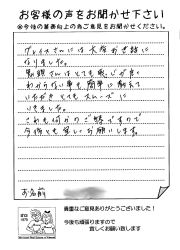 お客様の声をお聞かせ下さい
※今後の業務向上の為ご意見をお聞かせください。
プレイスさんには大変お世話に
なりました。
さんはとても感じが良く
わからない事も簡単に教えて
いただきとてもスムーズに
いきました。
これも何かのご縁ですので
今後とも宜しくお願いします。
お名前
貴重なご意見ありがとうございました!
今後も頑張りますので
宜しくお願い致します